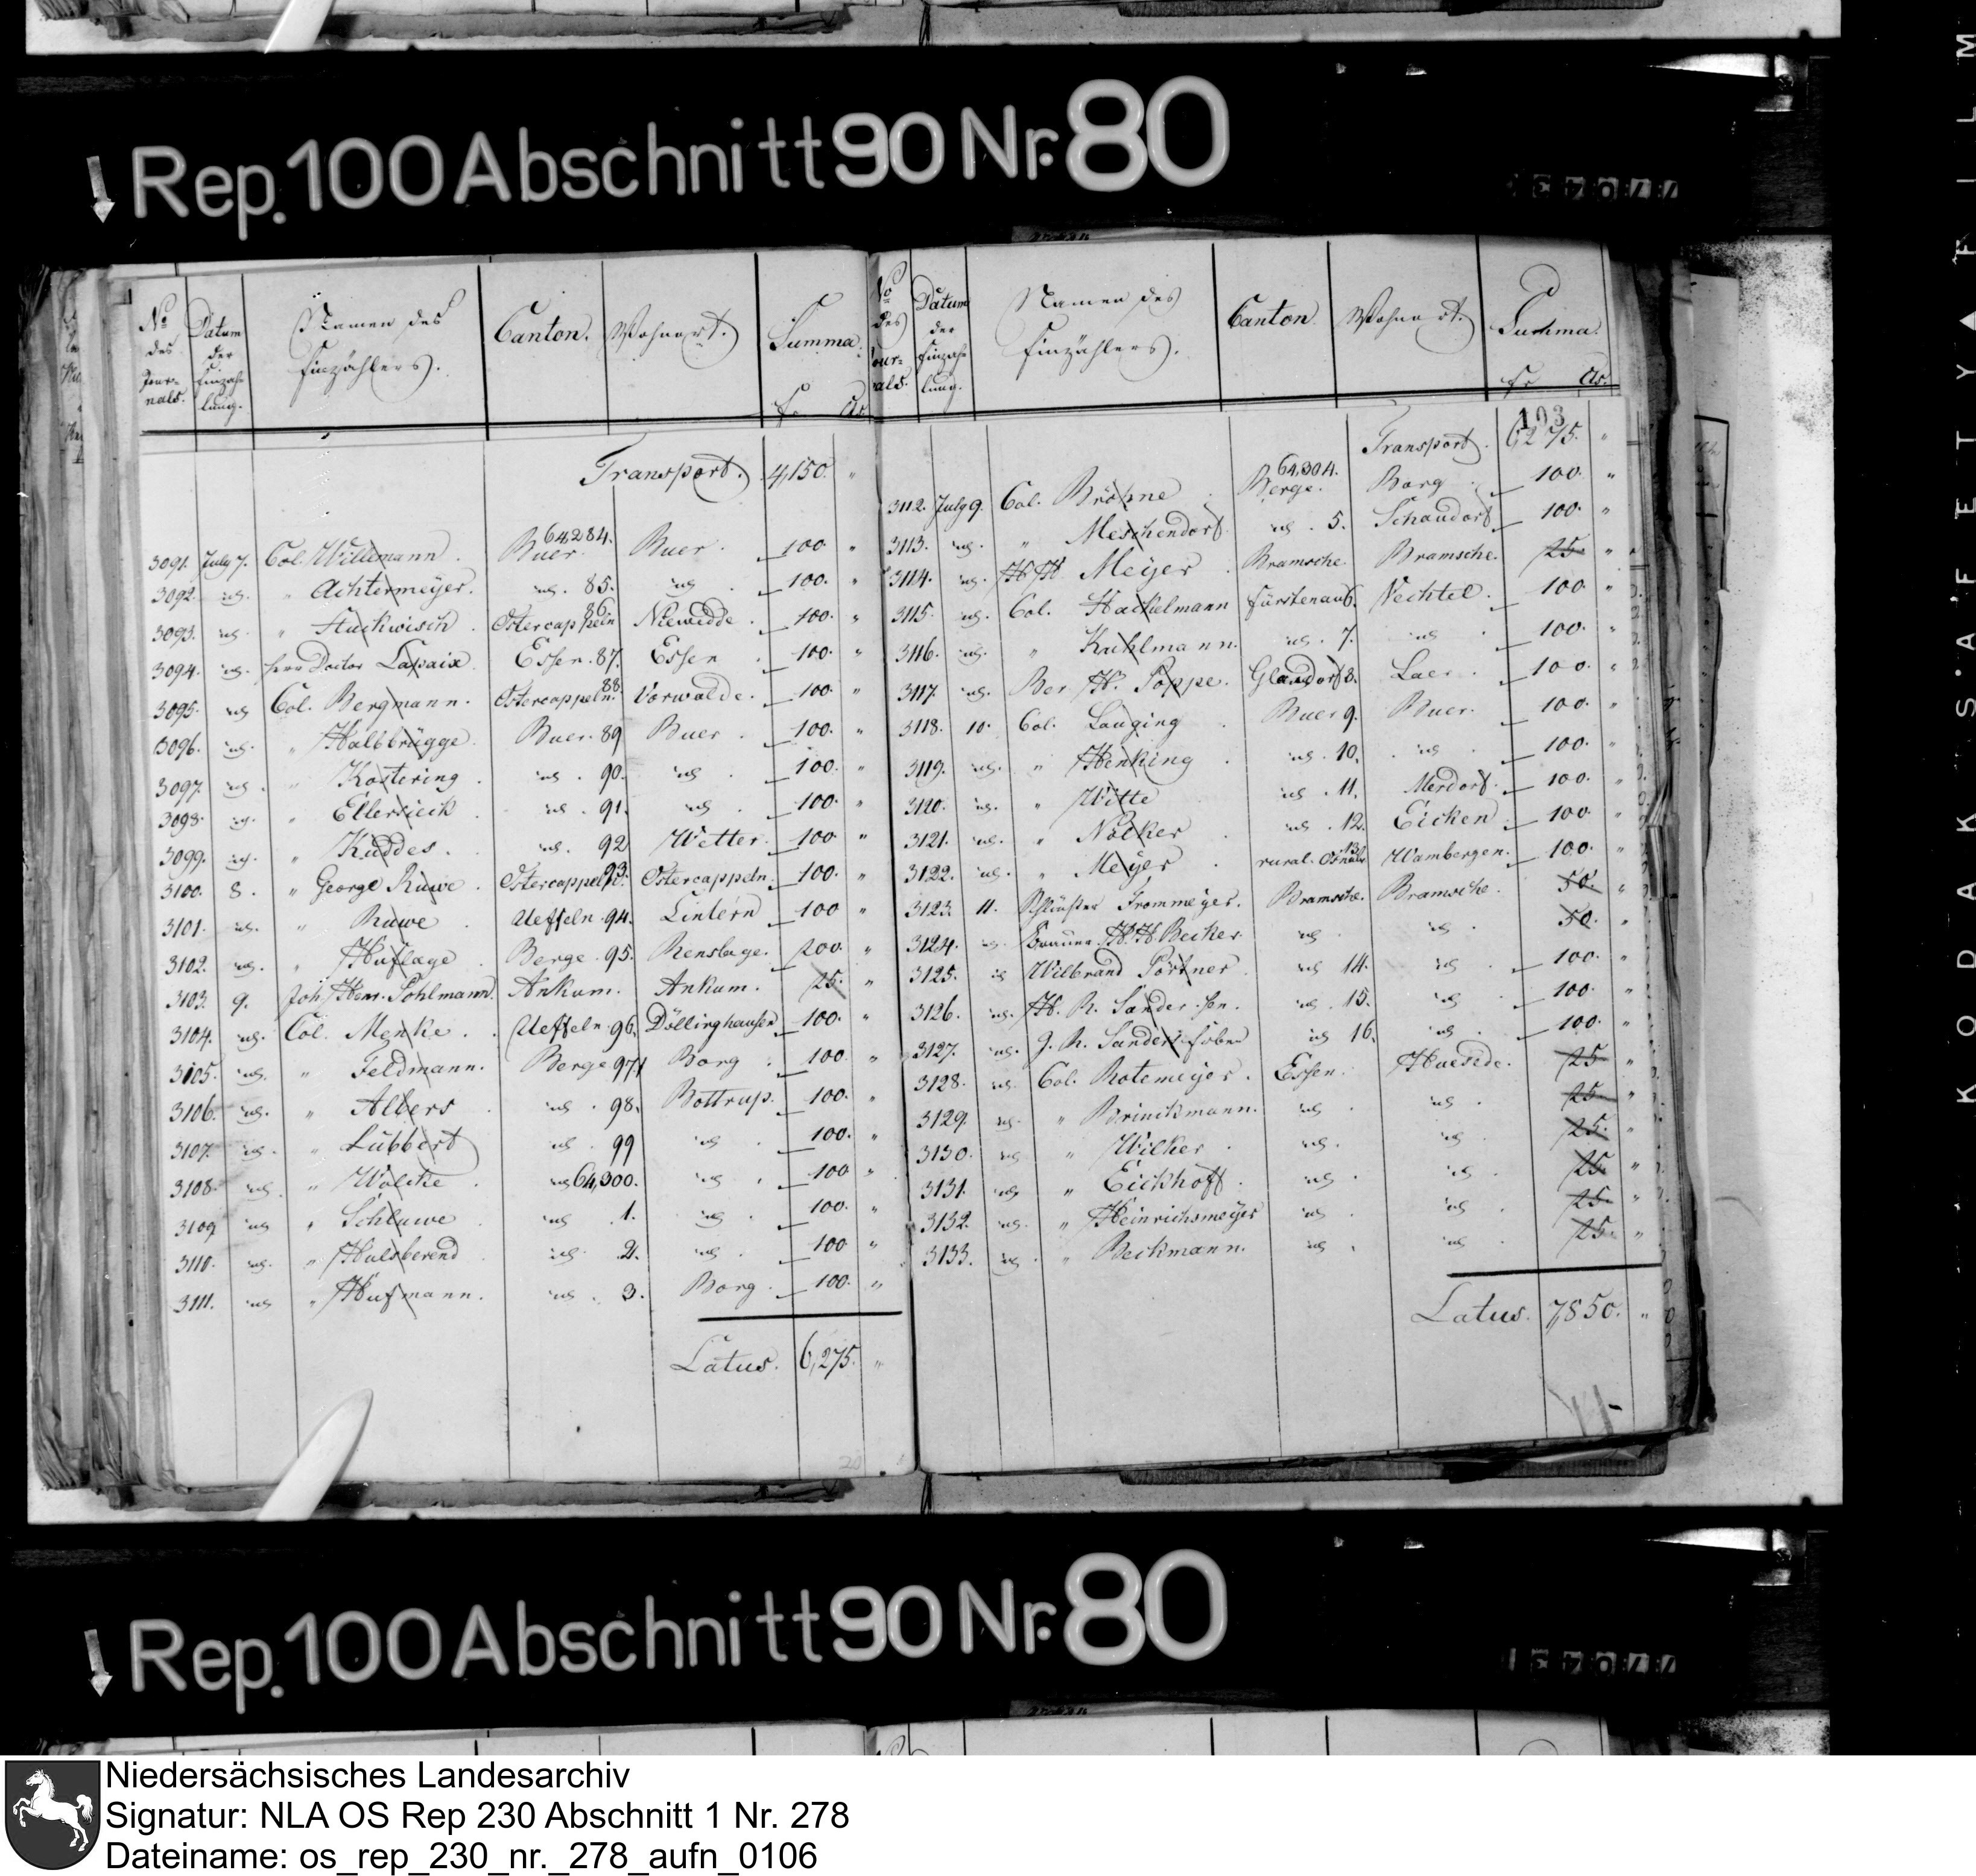 Rep. 100 Abschnitt 90 Nr. 80
No des Jour- nals. Datum der Einzah- lung. Namen des Einzählers. Canton. Wohnort. Summa. fr. Cs.
Transport. 4,150. "
3091. July 7. Col. Willemann. Buer. 64,284. Buer. 100. "
3092. id. " Achtermeyer. id. 85. id. 100. "
3093. id. " Huckwisch. Ostercappeln 86. Niewedde. 100. "
3094. id. Herr Doctor Lasaix. Essen. 87. Essen 100. "
3095. id. Col. Bergmann. Ostercappeln. 88. Vorwalde. 100. "
3096. id. " Halbbrügge. Buer. 89 Buer. 100. "
3097. id. " Kostering. id. 90. id. 100. "
3098. id. " Ellersieck id. 91. id. 100. "
3099. id. " Kuddes. id. 92 Wetter. 100. "
3100. 8. " George Ruwe. Ostercappeln. 93. Ostercappeln. 100. "
3101. id. " Ruwe Ueffeln. 94. Lintern 100 "
3102. id. " Huflage Berge. 95. Renslage. 200. "
3103. 9. Joh. Henr. Pohlmann. Ankum. Ankum. 25. "
3104. id. Col. Menke. Ueffeln. 96. Döllinghausen 100. "
3105. id. " Feldmann. Berge 97. Borg 100. "
3106. id. " Albers id. 98. Bottrup. 100. "
3107. id. " Lübbert id. 99 id. 100. "
3108. id. " Woltke id. 64,300. id. 100 "
3109 id. " Schluwe id. 1. id. 100. "
3110. id. " Hulsberend id. 2. id. 100 "
3111. id. " Hufmann. id. 3. Borg. 100. "
Latus. 6,275. "
No des Jour- nals. Datum der Einzah- lung. Namen des Einzählers. Canton Wohnort. Summa. fr. Cs.
103
Transport. 6275. "
3112. July 9. Col. Brohne Berge. 64,304. Borg 100. "
3113. id. " Meschendorf. id. 5. Schandorf 100. "
3114. id. H. H. Meyer Bramsche. Bramsche. 25. "
3115. id. Col. Hackelmann Fürstenau 6. Vechtel. 100. "
3116. id. " Kuhlmann. id. 7. id 100. "
3117. id. Ber H. Poppe. Glandorf 8. Laer. 100. "
3118. 10. Col. Lauging Buer 9. Buer. 100. "
3119. id. " Henking id. 10. id 100. "
3120. id. " Witte id. 11. Merdorf. 100. "
3121. id. " Nölker id. 12. Eicken. 100. "
3122. id. " Meyer rural. Osnabr. 13. Wambergen. 100. "
3123. 11. Frommeyer. Bramsche. Bramsche. 50. "
3124. id. H. H. Becker. id id. 50. "
3125. id Wilbrand Portner id 14. id 100. "
3126. id. H. R. Sander sen. id. 15. id 100. "
3127. id. J. R. Sander id 16. id. 100. "
3128. id. Col. Rotemeyer. Essen. Huesede. 25 "
3129. id. " Brinckmann. id. id. 25. "
3130. id. " Wilker id. id. 25. "
3131. id. " Eickhoff. id. id. 25. "
3132. id. " Heinrichsmeyer id. id. 25. "
3133. id. " Beckmann. id. id. 25. "
Latus. 7,850. "
Rep. 100 Abschnitt 90 Nr. 80
KODAK SAFETY▲FILM
Niedersächsisches Landesarchiv
Signatur: NLA OS Rep 230 Abschnitt 1 Nr. 278
Dateiname: os_rep_230_nr._278_aufn_0106